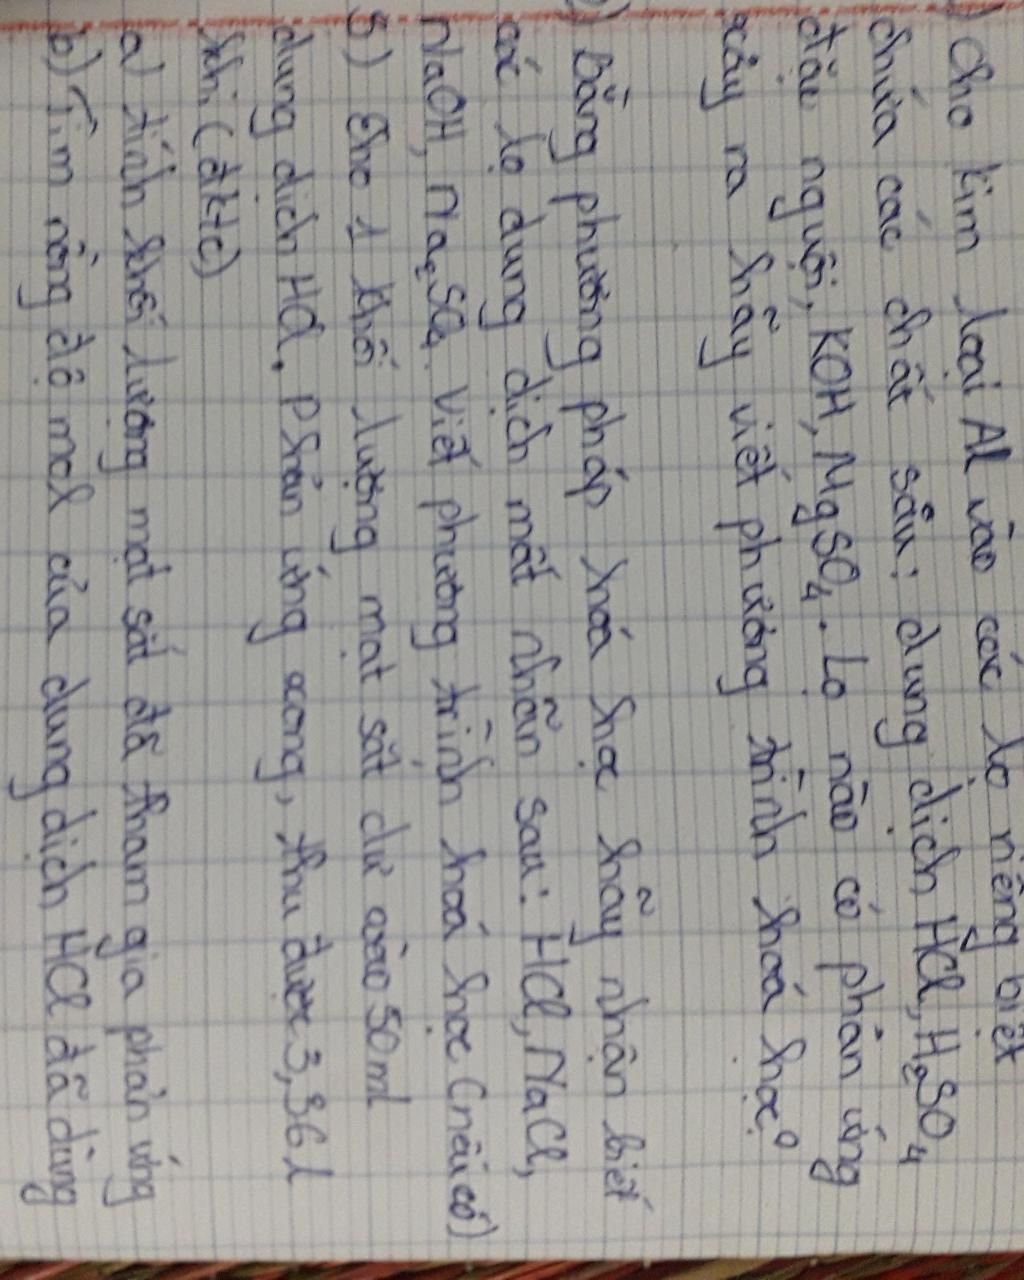 ) Cho kim loại Al vào các lọ riêng biệt
chứa các chất sâu: dung dịch HCl, H₂SO₄
đặc nguội, KOH, MgSO₄. Lọ nào có phản ứng
xảy ra hãy viết phương trình hoá học?
) Bằng phương pháp hoá học hãy nhận biết
các lọ dung dịch mất nhãn sau: HCl, NaCl,
NaOH, Na₂SO₄. Viết phương trình hoá học (nếu có)
5) Cho 1 khối lượng mạt sắt dư vào 50ml
dung dịch HCl. Phản ứng xong, thu được 3,36 l
khí (đktc)
a) tính khối lượng mạt sắt đã tham gia phản ứng
b) Tìm nồng độ mol của dung dịch HCl đã dùng